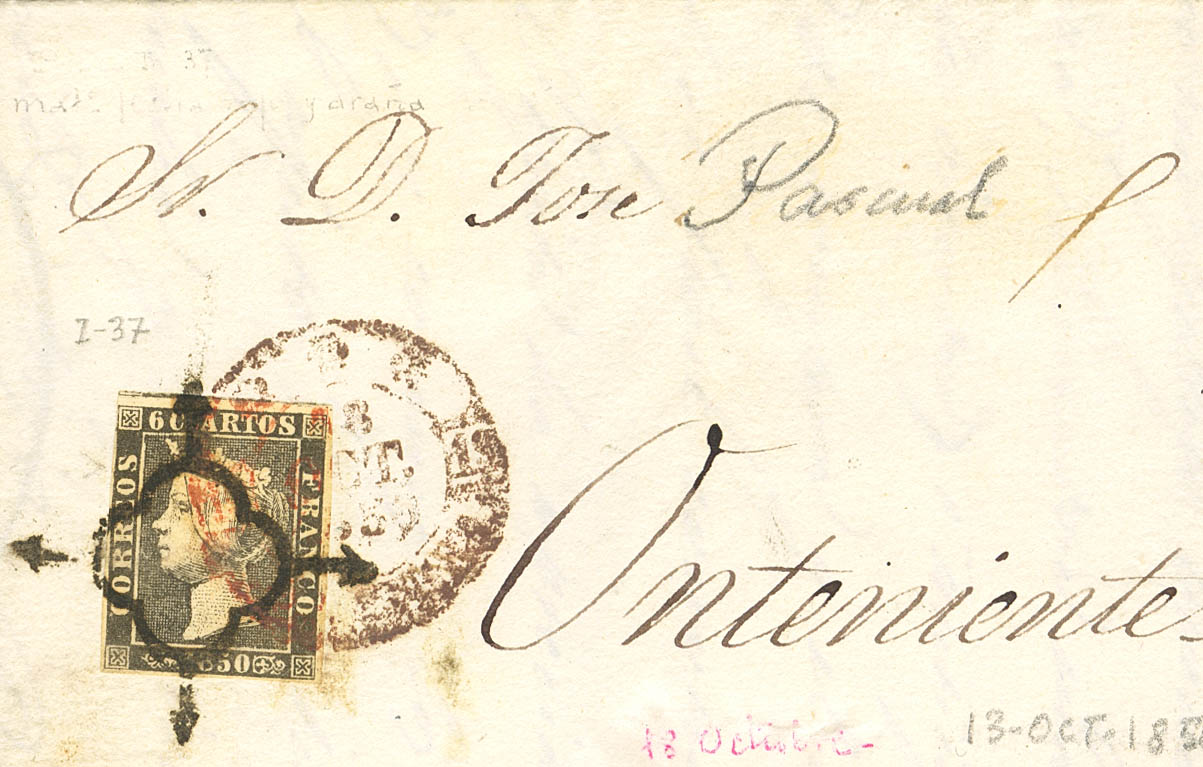 I-37
y araña
Sr. D. Jose Pascual
I-37
6 CUARTOS
CORREOS
FRANCO
1850
Onteniente
18 Octubre-
13-OCT-185